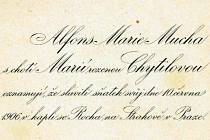 Alfons Marie Mucha
s chotí Marií rozenou Chytilovou
oznamují, že slavili sňatek svůj dne 10. června
1906 v kapli sv. Rocha na Strahově v Praze.